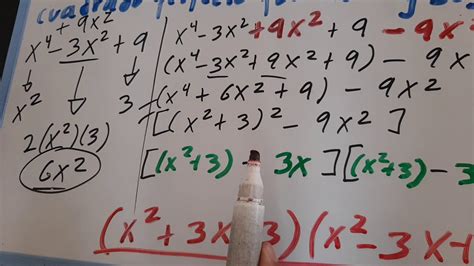 cuadrado
+ 9x²
x⁴ - 3x² + 9
x²
3
2(x²)(3)
6x²
x⁴ - 3x² + 9x² + 9 - 9x²
(x⁴ - 3x² + 9x² + 9) - 9x
(x⁴ + 6x² + 9) - 9x²
[(x² + 3)² - 9x²]
[(x²+3) 3x][(x²+3) - 3
(x² + 3x 3)(x² - 3x +